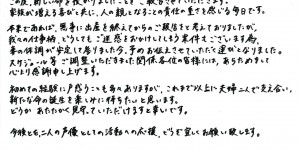 この度、新しい命を授かりましたことをご報告させていただきます。
家族が増える喜びと共に、人の親となることの責任の重さを感じる今日です。
本来であれば、無事に出産を終えてからのご報告をと考えておりましたが、
我々の仕事柄、どうしてもご迷惑をおかけしてしまう案件もございます為、
妻の体調が安定して参りました今、予めお伝えさせていただく運びとなりました。
スケジュール等ご調整いただきました関係各位の皆様には、あらためまして
心より感謝申し上げます。
初めての経験に戸惑うことも多々ありますが、これまで以上に夫婦二人で支え合い、
新たな命の誕生を楽しみに待ちたいと思います。
どうかあたたかく見守っていただけますと幸いです。
今後とも、二人の声優としての活動への応援、どうぞ宜しくお願い致します。